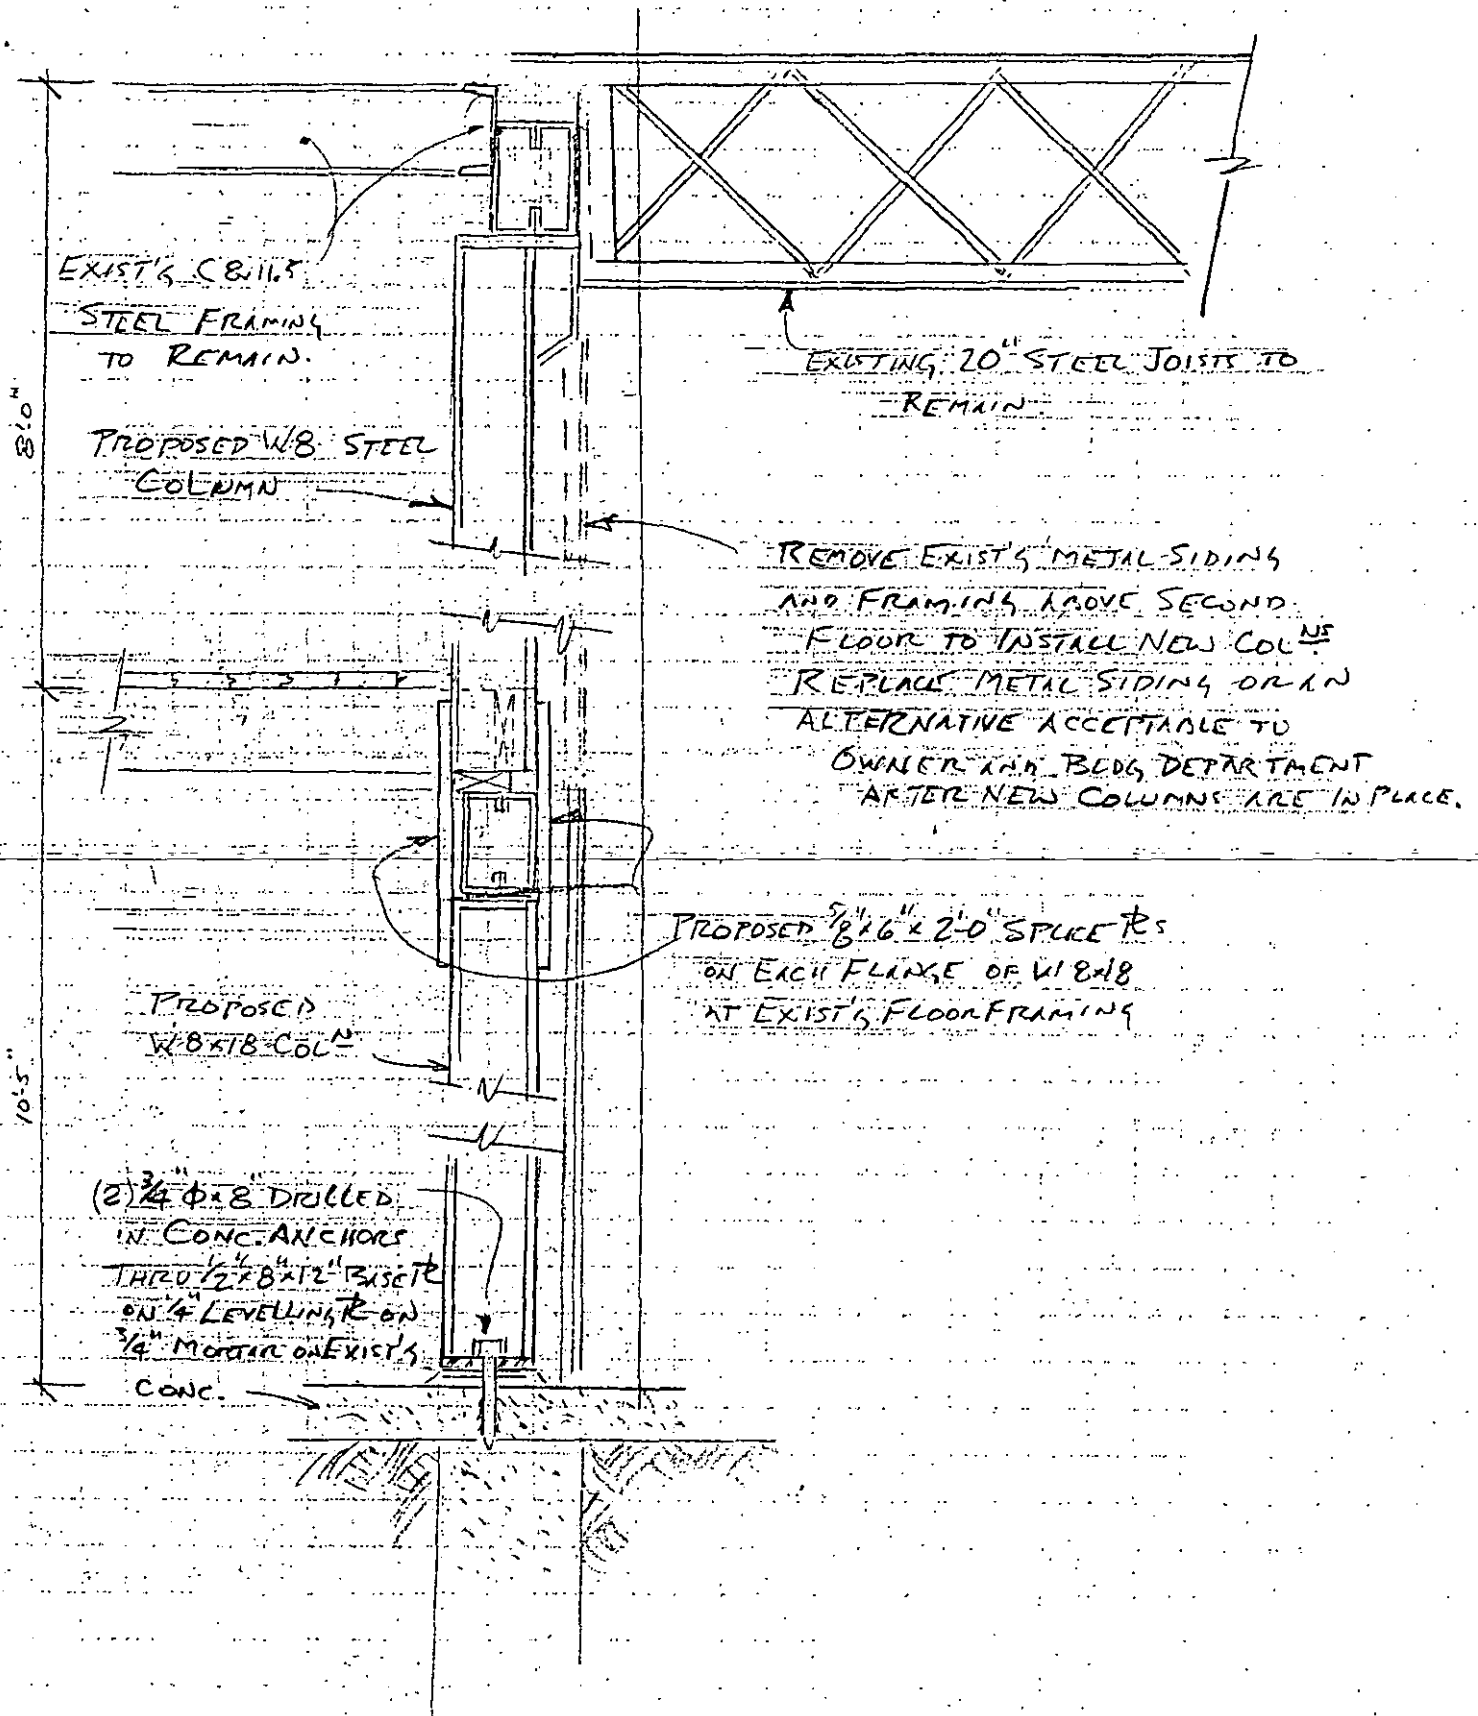 EXIST'G C8x11.5
STEEL FRAMING
TO REMAIN.
8'-0"
EXISTING 20" STEEL JOISTS TO
REMAIN.
PROPOSED W8 STEEL
COLUMN
REMOVE EXIST'G METAL SIDING
AND FRAMING ABOVE SECOND
FLOOR TO INSTALL NEW COLNS
REPLACE METAL SIDING OR AN
ALTERNATIVE ACCEPTABLE TO
OWNER AND BLDG DEPARTMENT
AFTER NEW COLUMNS ARE IN PLACE.
PROPOSED 5/8"x6"x2'-0" SPLICE PLs
ON EACH FLANGE OF W8x18
AT EXIST'G FLOOR FRAMING
PROPOSED
W8x18 COLN
10'-5"
(2) 3/4"Φx8" DRILLED
IN CONC. ANCHORS
THRU 1/2"x8"x12" BASE PL
ON 1/4" LEVELLING PL ON
3/4" MORTAR ON EXIST'G
CONC.